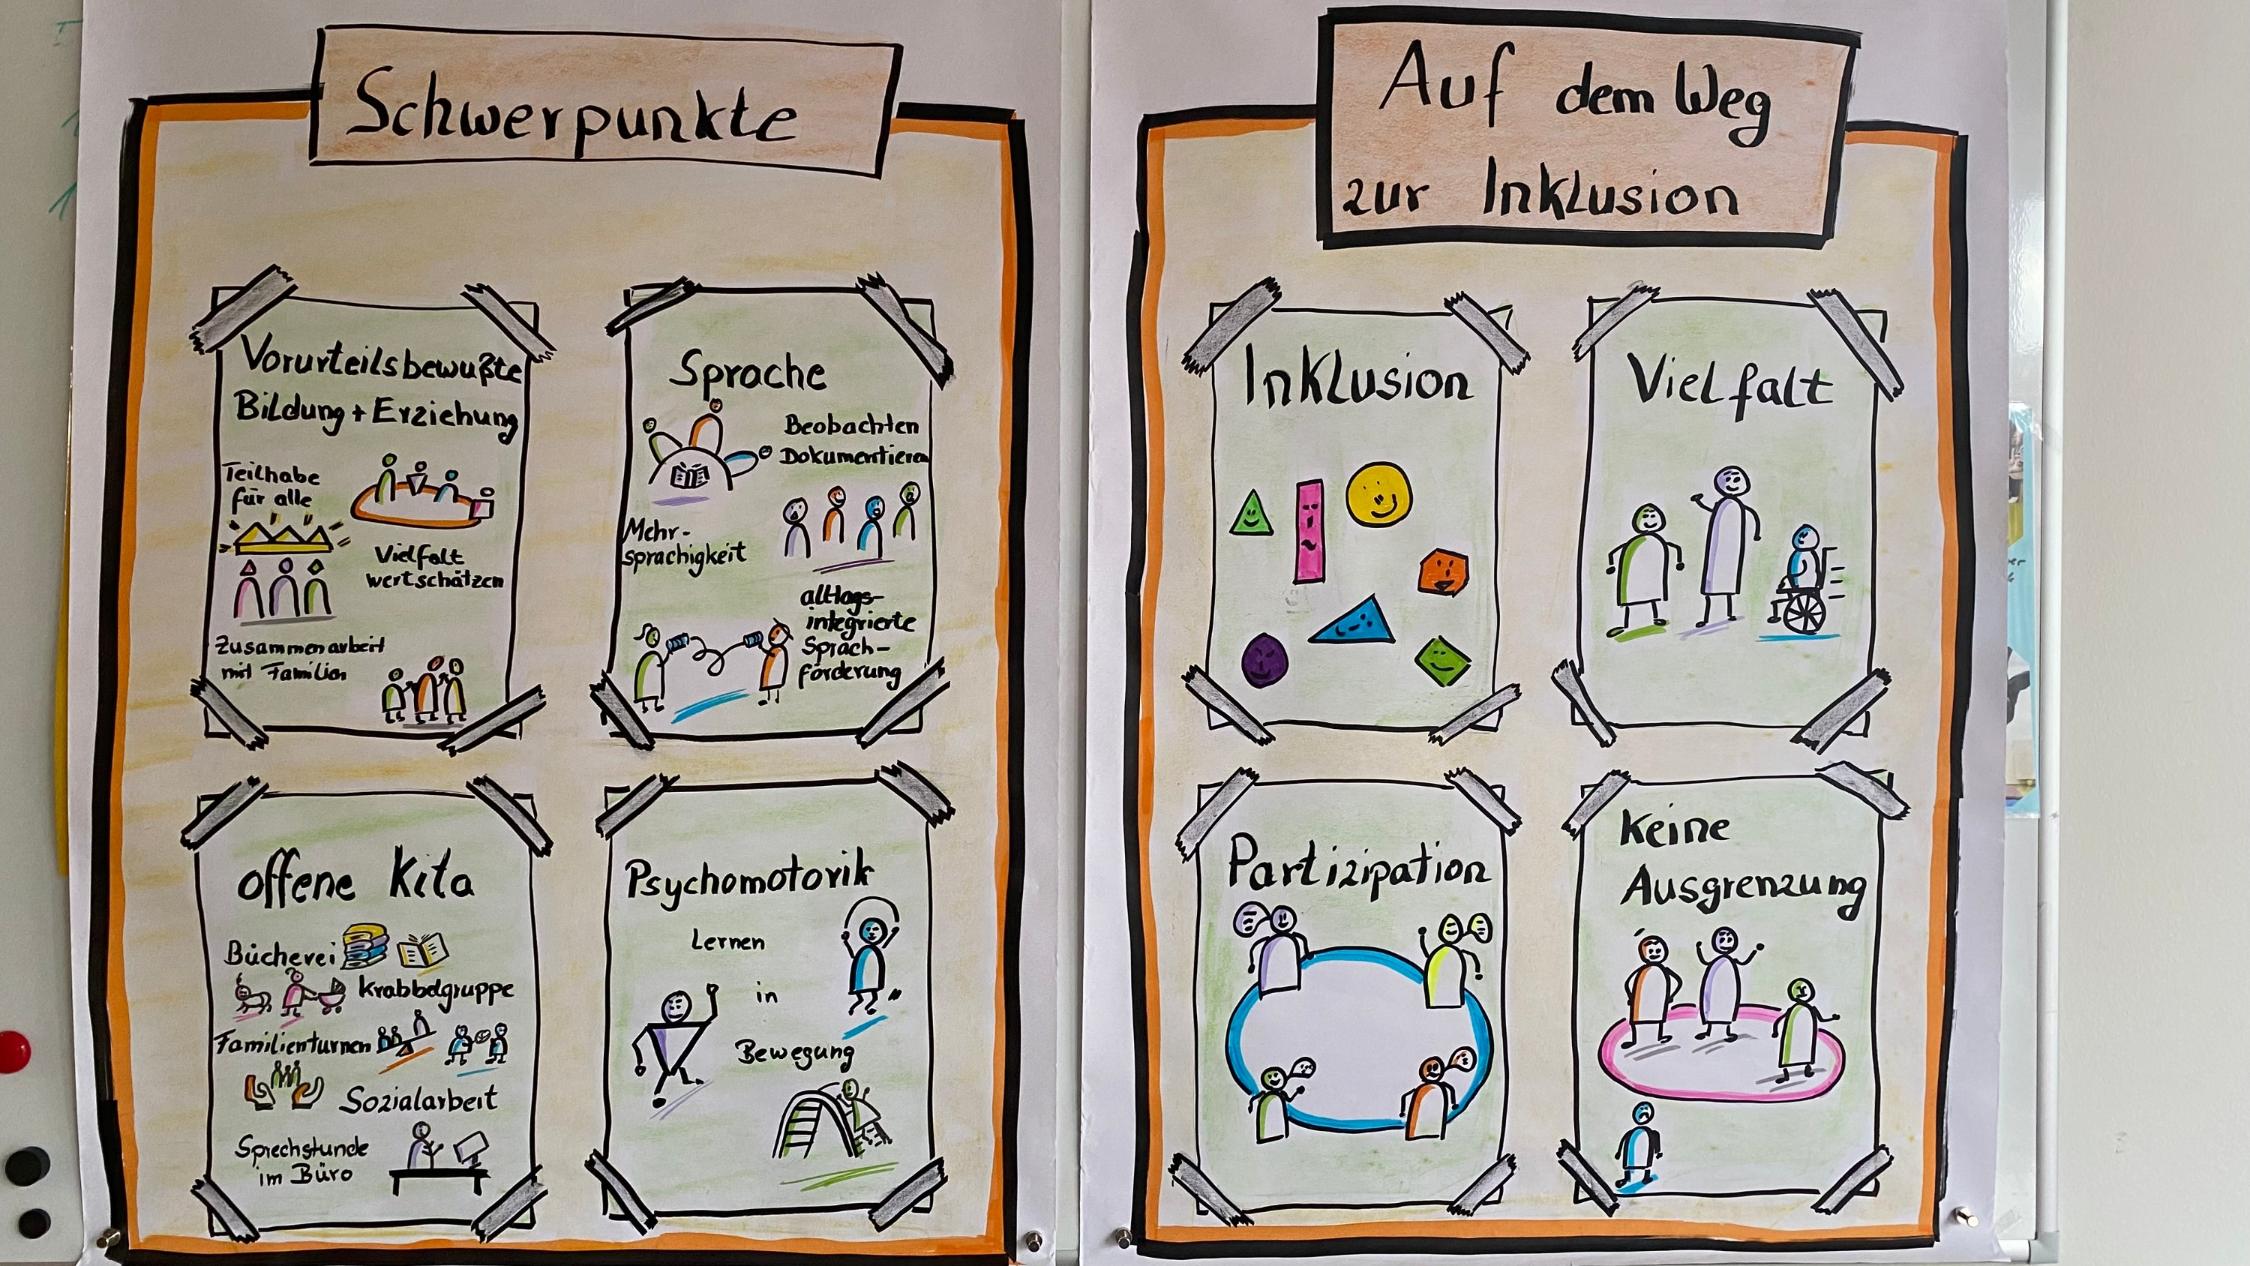 Schwerpunkte
Vorurteilsbewußte
Bildung + Erziehung
Teilhabe
für alle
Vielfalt
wertschätzen
Zusammenarbeit
mit Familien
Sprache
Beobachten
Dokumentieren
Mehr-
sprachigkeit
alltags-
integrierte
Sprach-
förderung
offene Kita
Bücherei
Krabbelgruppe
Familienturnen
Sozialarbeit
Sprechstunde
im Büro
Psychomotorik
Lernen
in
Bewegung
Auf dem Weg
zur Inklusion
Inklusion
Vielfalt
Partizipation
Keine
Ausgrenzung